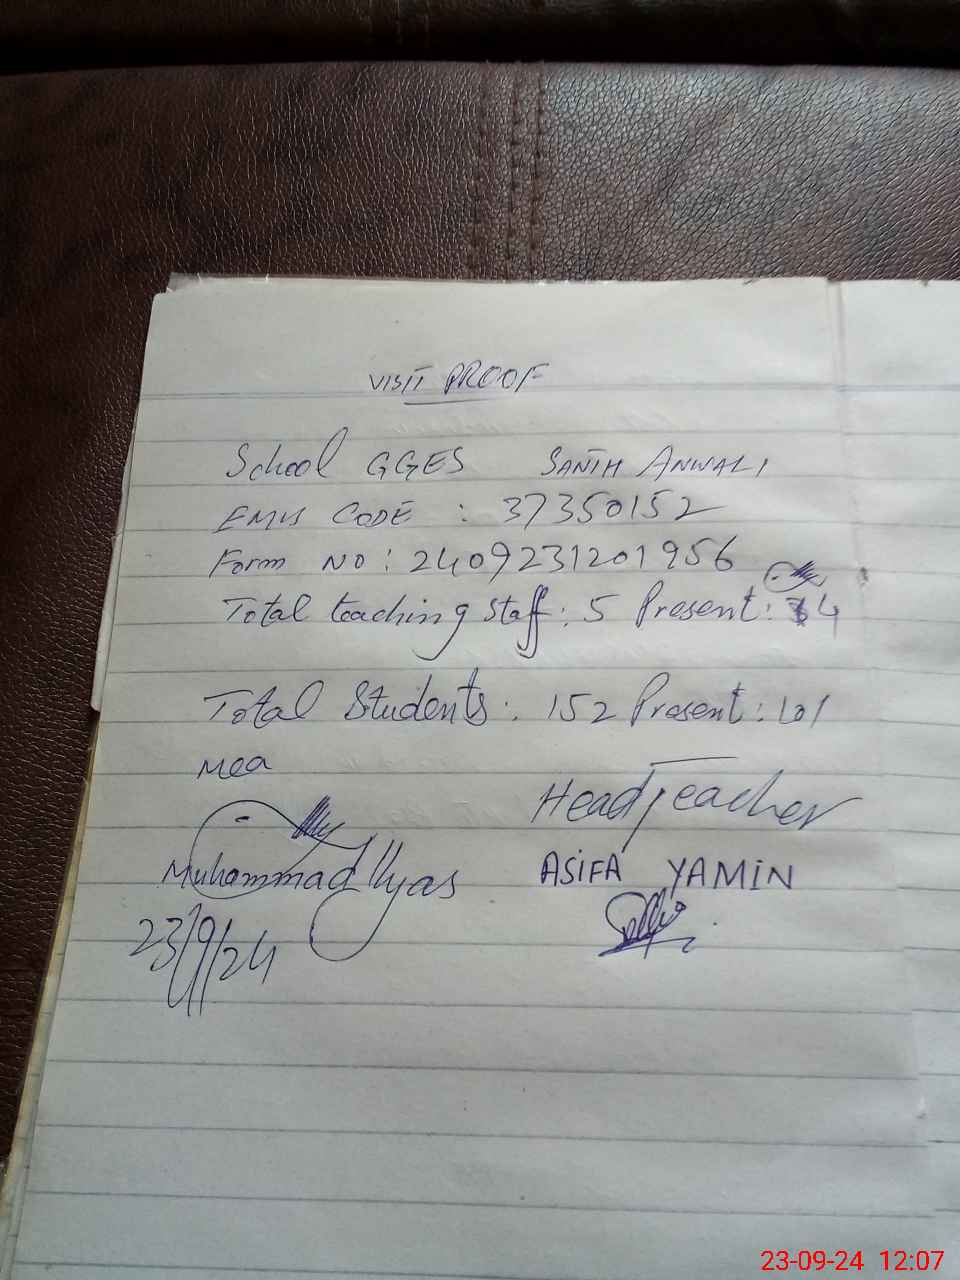 VISIT PROOF
School GGES SANTH ANWALI
EMIS CODE : 37350152
Form NO : 2409231201956
Total teaching staff : 5 Present : 4
Total Students : 152 Present : 101
Mea
HeadTeacher
Muhammad Ilyas
ASIFA YAMIN
23/9/24
23-09-24 12:07